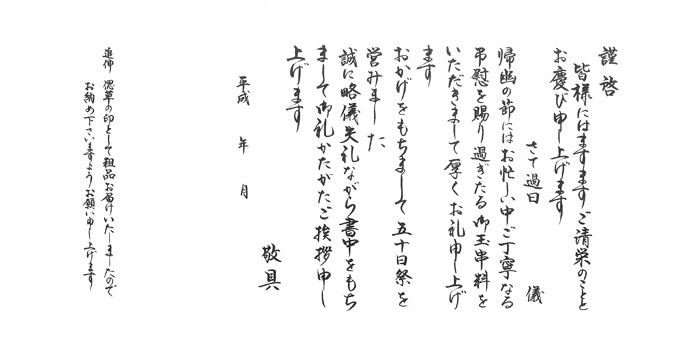 謹啓
皆様にはますますご清栄のことと
お慶び申し上げます
さて過日　儀
帰幽の節にはお忙しい中ご丁寧なる
弔慰を賜り過ぎたる御玉串料を
いただきまして厚くお礼申し上げ
ます
おかげをもちまして五十日祭を
営みました
誠に略儀失礼ながら書中をもち
まして御礼かたがたご挨拶申し
上げます
敬具
平成　年　月
追伸　偲草の印として粗品お届けいたしましたので
お納め下さいますようお願い申し上げます